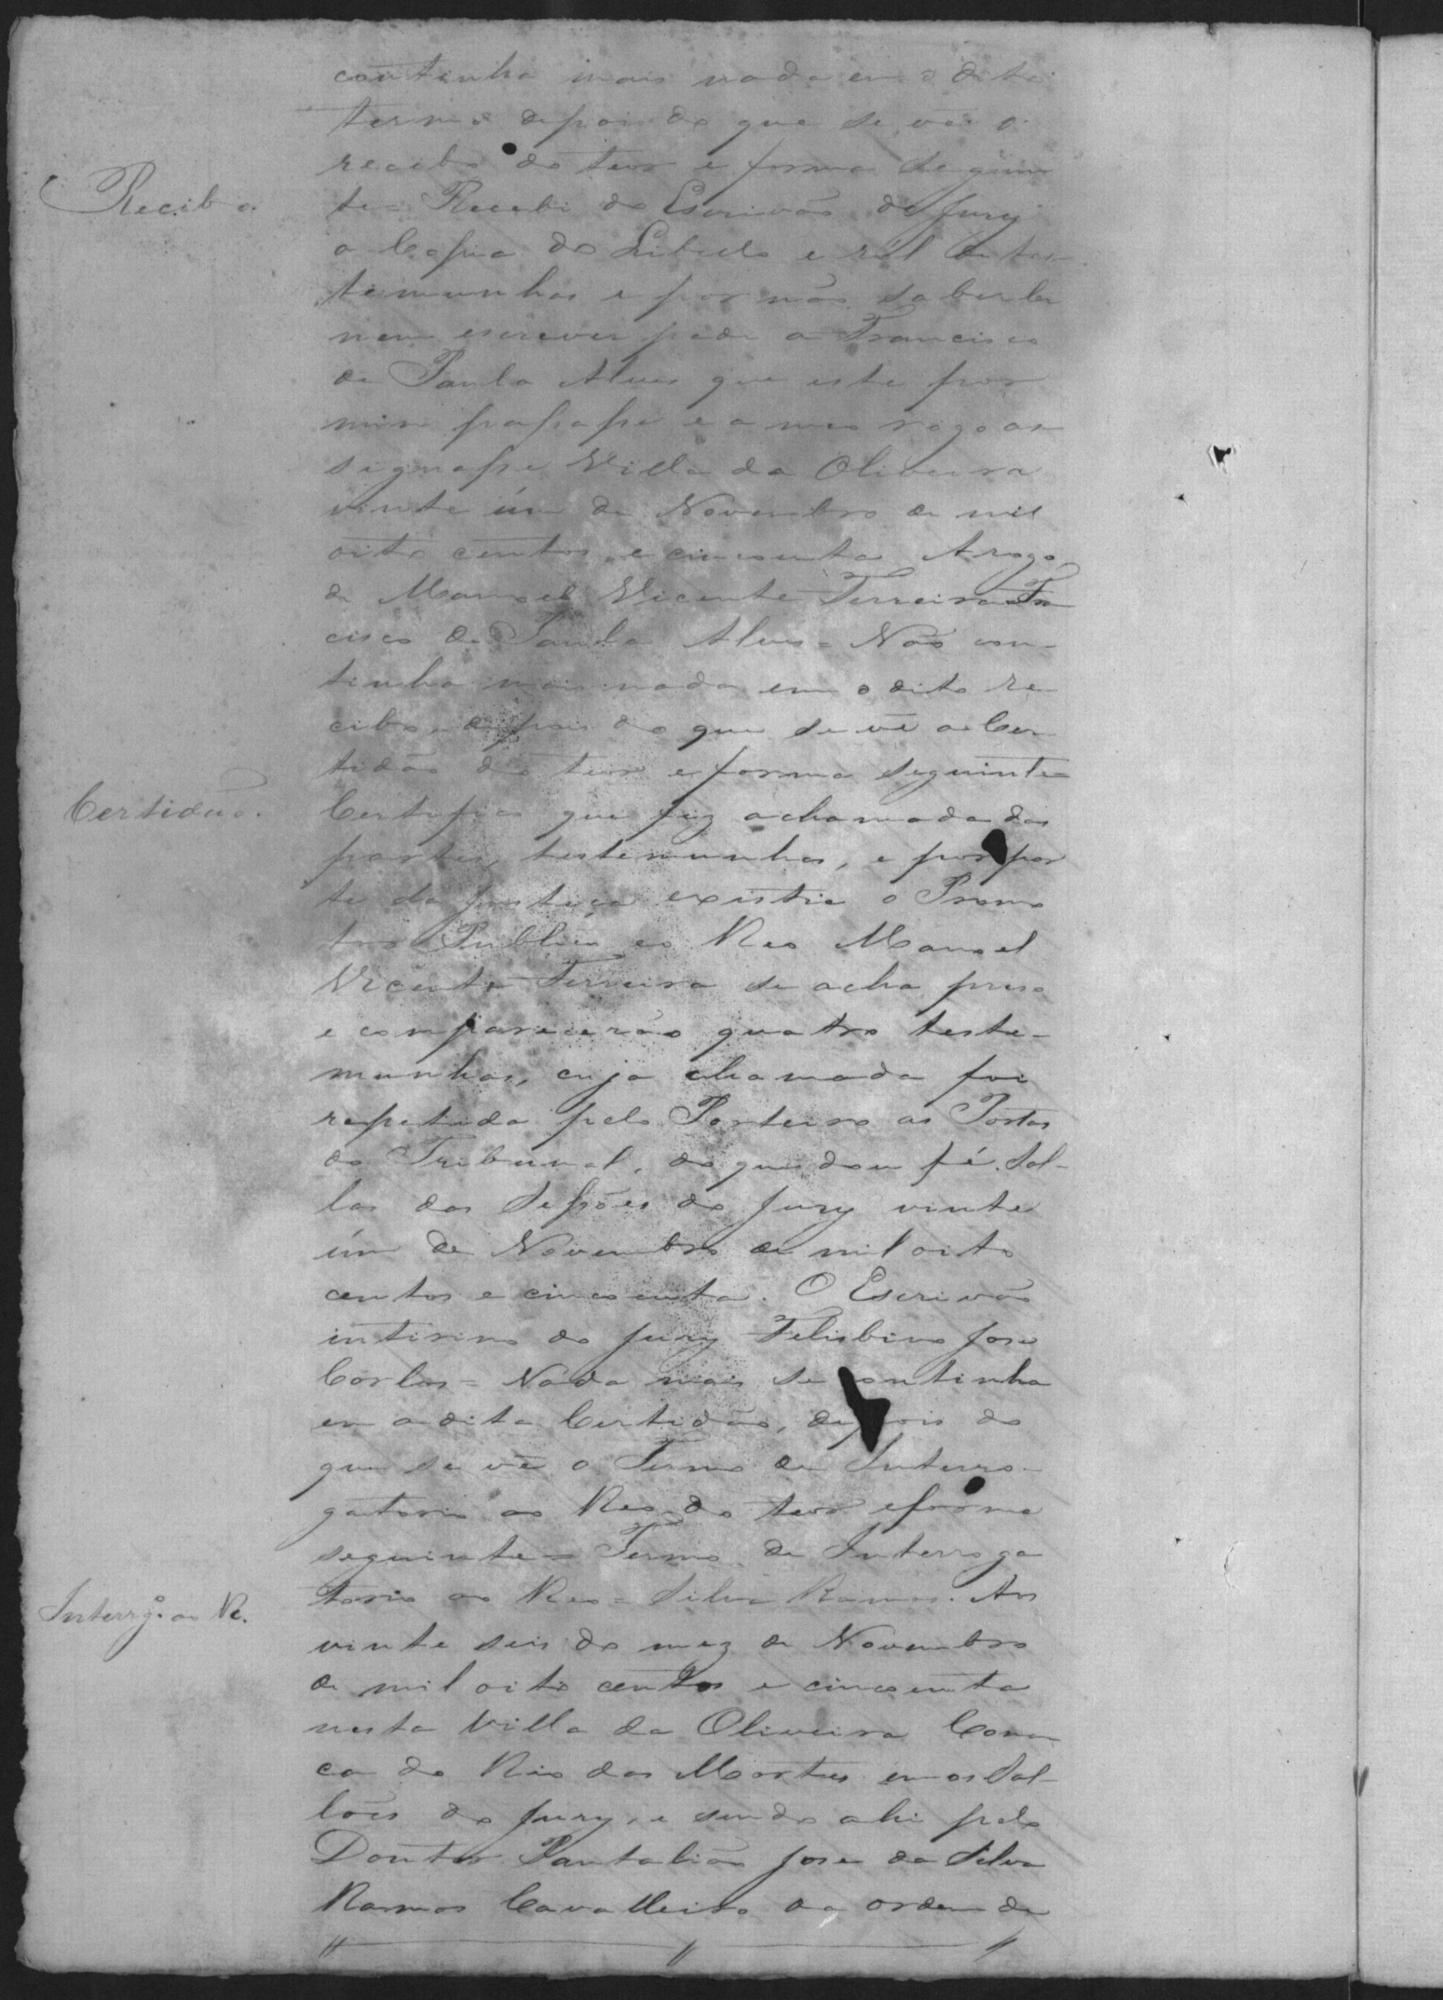 continha mais nada em o dito
termo depois do que se vê o
Recibo.
recibo do teor e forma seguin
te = Recebi do Escrivão do Jury
a Copia do Libello e ról de tes-
temunhas e por não saber ler
nem escrever pedi a Francisco
de Paula Alves que este por
mim passasse e a meo rogo as
signasse, Villa da Oliveira
vinte úm de Novembro de mil
oito centos e cincoenta. A rogo
de Manoel Vicente Ferreira Fran
cisco de Paula Alves = Não con-
tinha mais nada em o dito re
cibo, depois do que se vê a Cer
tidão do teor e forma seguinte
Certidão.
Certifico que fiz a chamada das
partes, testemunhas, e por par
te da Justiça existio o Promo
tor Publico eo Reo Manoel
Vicente Ferreira se acha preso
e comparecerão quatro teste-
munhas, cuja chamada foi
repetida pelo Porteiro as Portas
do Tribunal, do que dou fé. Sal-
las das Sessões do Jury vinte
úm de Novembro de mil oito
centos e cincoenta. O Escrivão
interino do Jury Felisbino Jose
Corlos = Nada mais se continha
em a dita Certidão, depois do
que se vê o Termo de Interro-
gatorio ao Reo do teor e forma
seguinte = Termo de Interroga
Interrgº. ao R.
torio ao Reo = Silva Ramos. Aos
vinte seis do mez de Novembro
de mil oito centos e cincoenta
nesta Villa da Oliveira Comar
ca do Rio das Mortes em os Sal-
lões do Jury, e sendo ahi pelo
Doutor Pantalião Jose da Silva
Ramos Cavalleiro da ordem de